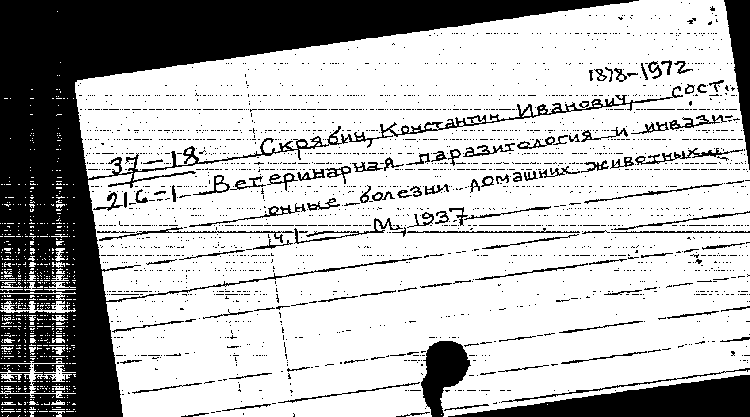 1878-1972
37-18 Скрябин, Константин Иванович, сост.
216-1 Ветеринарная паразитология и инвази-
онные болезни домашних животных...
Ч.1 — М., 1937